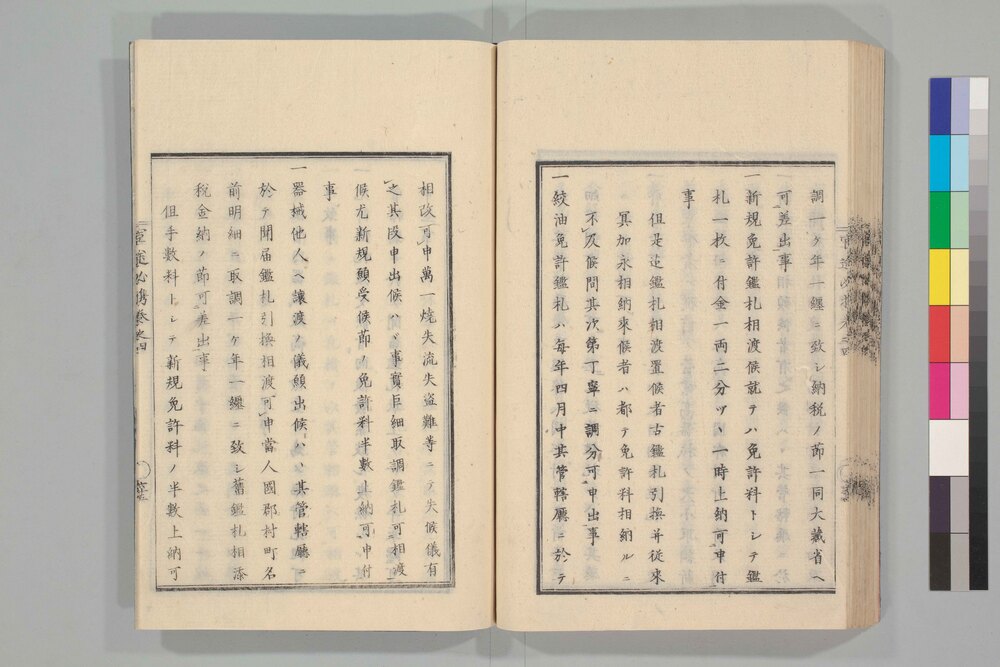 調一ヶ年一纏ニ致シ納税ノ節一同大藏省ヘ
可差出事
一新規免許鑑札相渡候就テハ免許料トシテ鑑
札一枚ニ付金一両二分ツヽ一時上納可申付
事
但是迄鑑札相渡置候者古鑑札引換并従来
冥加永相納来候者ハ都テ免許料相納ルニ
不及候間其次第丁寧ニ調分可申出事
一絞油免許鑑札ハ毎年四月中其管轄廳ニ於テ
相改可申萬一焼失流失盗難等ニテ失候儀有
之其段申出候ハヾ事實巨細取調鑑札可相渡
候尤新規願受候節ノ免許料半數上納可申付
事
一器械他人ヘ讓渡ノ儀願出候ハヽ其管轄廳ニ
於テ聞届鑑札引換相渡可申當人國郡村町名
前明細ニ取調一ヶ年一纏ニ致シ舊鑑札相添
税金納ノ節可差出事
但手數料トシテ新規免許料ノ半數上納可